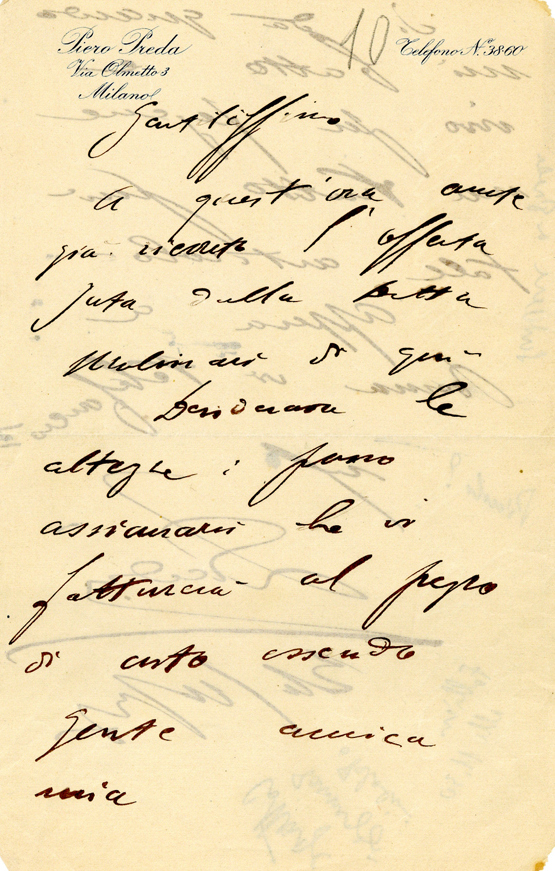 Piero Preda
Via Olmetto 3
Milano
Telefono N.° 3860
10
Gentilissimo
A quest'ora avrete
già ricevuto l'offerta
Juta dalla Ditta
Molinari di qui
Desiderava le
i posso
assicurarvi he vi
fatturerà al prezzo
di costo essendo
gente amica
mia